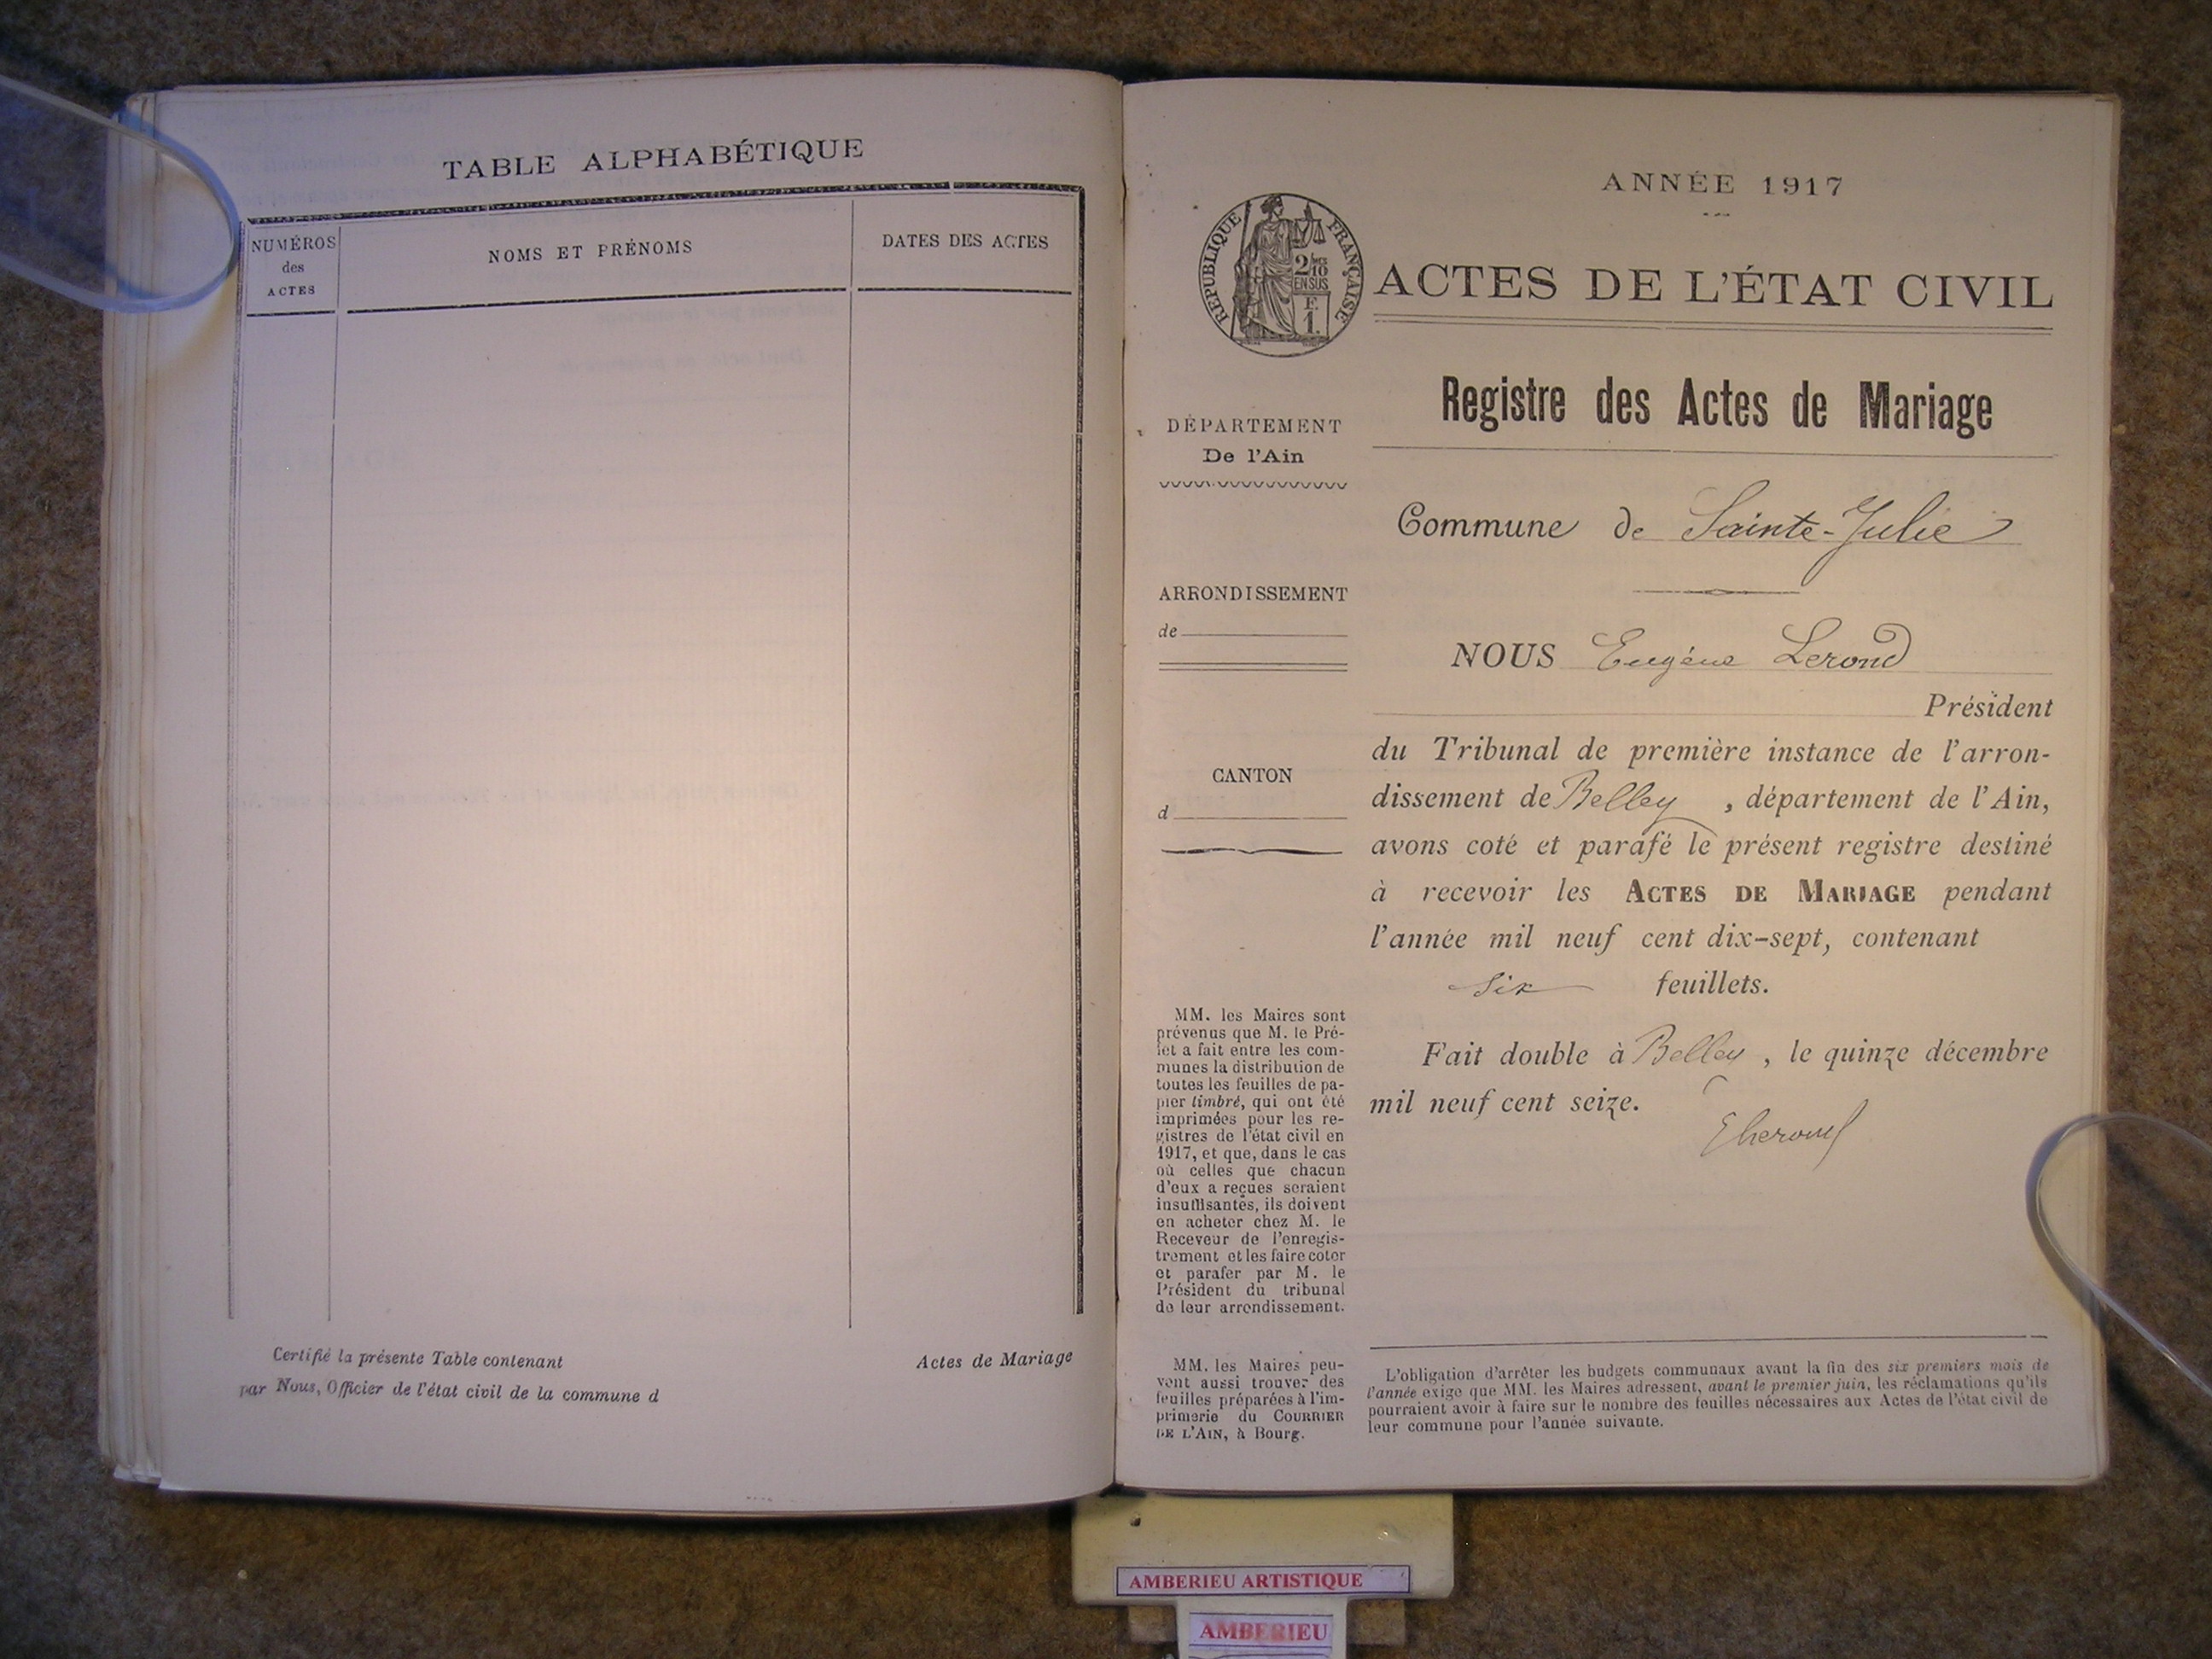 TABLE ALPHABÉTIQUE
NUMÉROS
des
ACTES
NOMS ET PRÉNOMS
DATES DES ACTES
Certifié la présente Table contenant
par Nous, Officier de l'état civil de la commune d
Actes de Mariage
ANNÉE 1917
RÉPUBLIQUE FRANÇAISE
2/10
EN SUS
F.
1.
ACTES DE L'ÉTAT CIVIL
Registre des Actes de Mariage
DÉPARTEMENT
De l'Ain
Commune de Sainte-Julie
ARRONDISSEMENT
de
NOUS Eugène Lerond
Président
du Tribunal de première instance de l'arron-
dissement de Belley, département de l'Ain,
avons coté et parafé le présent registre destiné
à recevoir les ACTES DE MARIAGE pendant
l'année mil neuf cent dix-sept, contenant
six feuillets.
Fait double à Belley, le quinze décembre
mil neuf cent seize.
CANTON
d
MM. les Maires sont
prévenus que M. le Pré-
fet a fait entre les com-
munes la distribution de
toutes les feuilles de pa-
pier timbré, qui ont été
imprimées pour les re-
gistres de l'état civil en
1917, et que, dans le cas
où celles que chacun
d'eux a reçues seraient
insuffisantes, ils doivent
en acheter chez M. le
Receveur de l'enregis-
trement et les faire coter
et parafer par M. le
Président du tribunal
de leur arrondissement.
MM. les Maires peu-
vent aussi trouver des
feuilles préparées à l'im-
primerie du COURRIER
DE L'AIN, à Bourg.
L'obligation d'arrêter les budgets communaux avant la fin des six premiers mois de
l'année exige que MM. les Maires adressent, avant le premier juin, les réclamations qu'ils
pourraient avoir à faire sur le nombre des feuilles nécessaires aux Actes de l'état civil de
leur commune pour l'année suivante.
AMBERIEU ARTISTIQUE
AMBERIEU